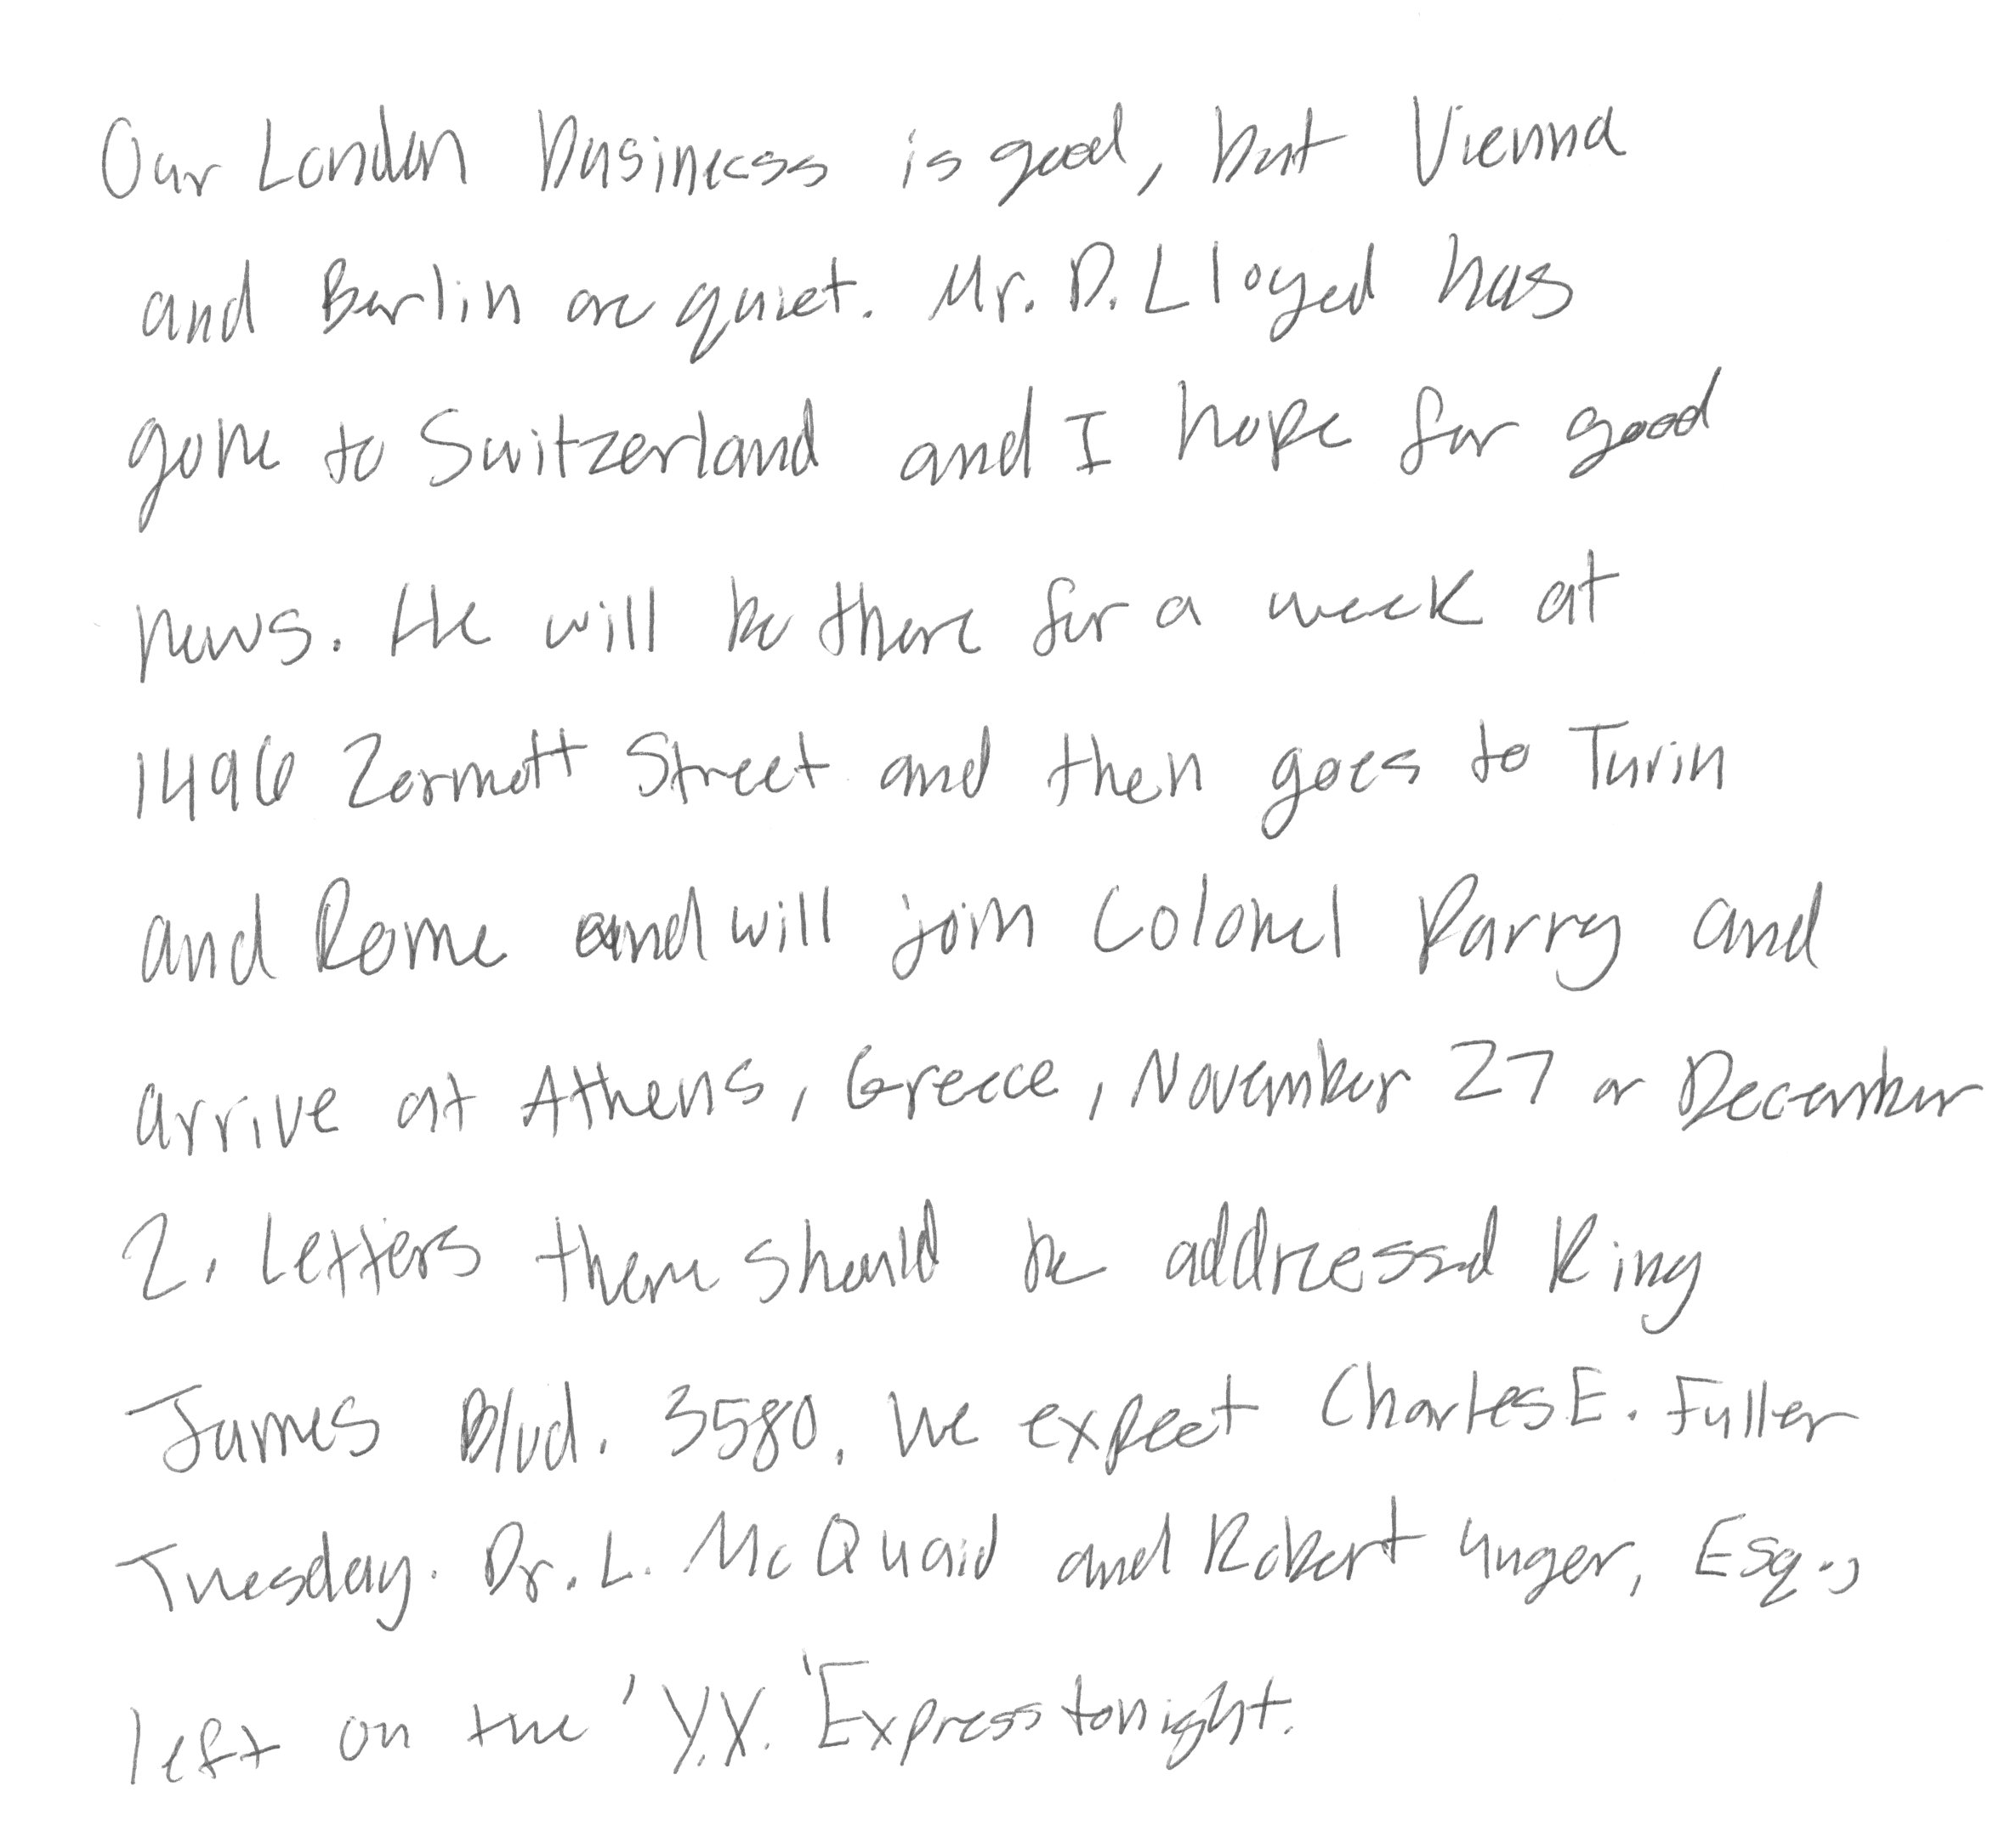 Our London business is good, but Vienna
and Berlin are quiet. Mr. D. Lloyed has
gone to Switzerland and I hope for good
news. He will be there for a week at
1496 Zermott Street and then goes to Turin
and Rome and will join Colonel Parry and
arrive at Athens, Greece, November 27 or December
2. Letters there should be addressed King
James Blvd. 3580. We expect Charles E. Fuller
Tuesday. Dr. L. McQuaid and Robert Unger, Esq.,
left on the 'Y.X.' Express tonight.